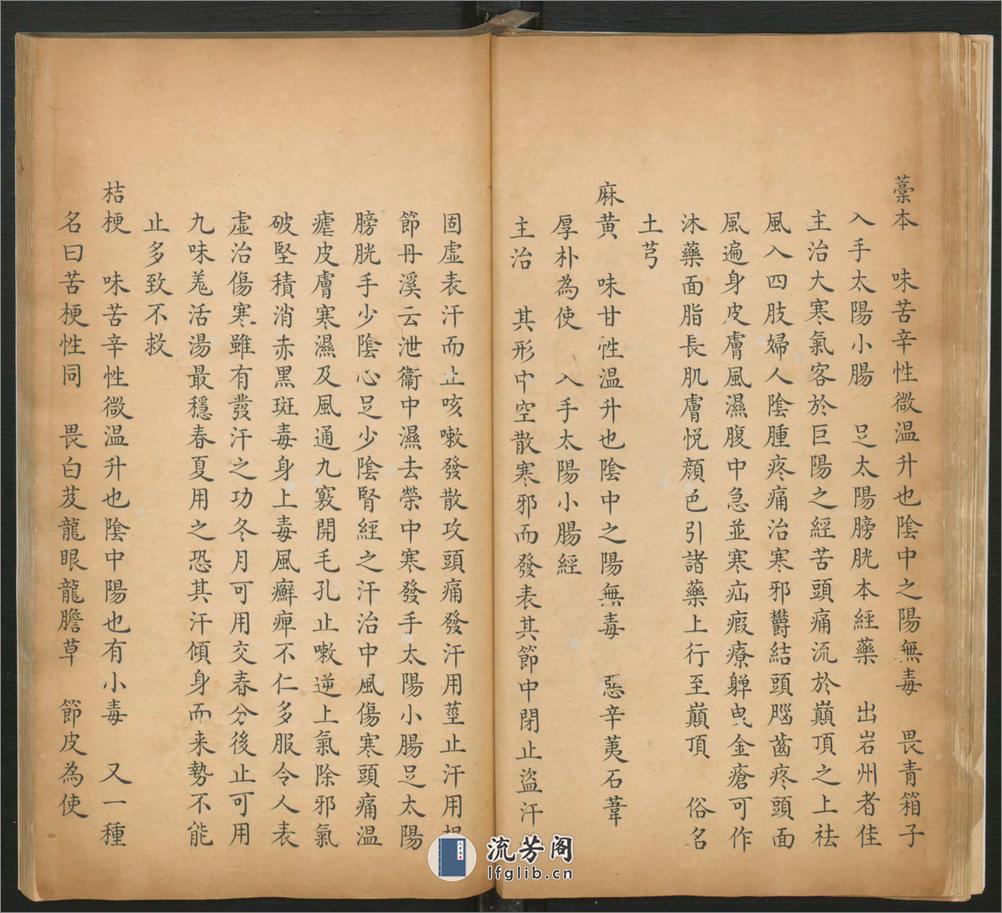 藁本　味苦辛性微温升也陰中之陽無毒　畏青箱子
入手太陽小腸　足太陽膀胱本經藥　出岩州者佳
主治大寒氣客於巨陽之經苦頭痛流於巔頂之上祛
風入四肢婦人陰腫疼痛治寒邪欝結頭腦齒疼頭面
風遍身皮膚風濕腹中急並寒疝瘕療軃曳金瘡可作
沐藥面脂長肌膚悦顔色引諸藥上行至巔頂　俗名
土芎
麻黄　味甘性温升也陰中之陽無毒　惡辛荑石葦
厚朴為使　入手太陽小腸經
主治　其形中空散寒邪而發表其節中閉止盜汗
固虛表汗而止咳嗽發散攻頭痛發汗用莖止汗用根
節丹溪云泄衞中濕去榮中寒發手太陽小腸足太陽
膀胱手少陰心足少陰腎經之汗治中風傷寒頭痛温
瘧皮膚寒濕及風通九竅開毛孔止嗽逆上氣除邪氣
破堅積消赤黑斑毒身上毒風癬痺不仁多服令人表
虛治傷寒雖有發汗之功冬月可用交春分後止可用
九味羗活湯最穩春夏用之恐其汗傾身而来勢不能
止多致不救
桔梗　味苦辛性微温升也陰中陽也有小毒　又一種
名曰苦梗性同　畏白芨龍眼龍膽草　節皮為使
流芳阁
lfglib.cn